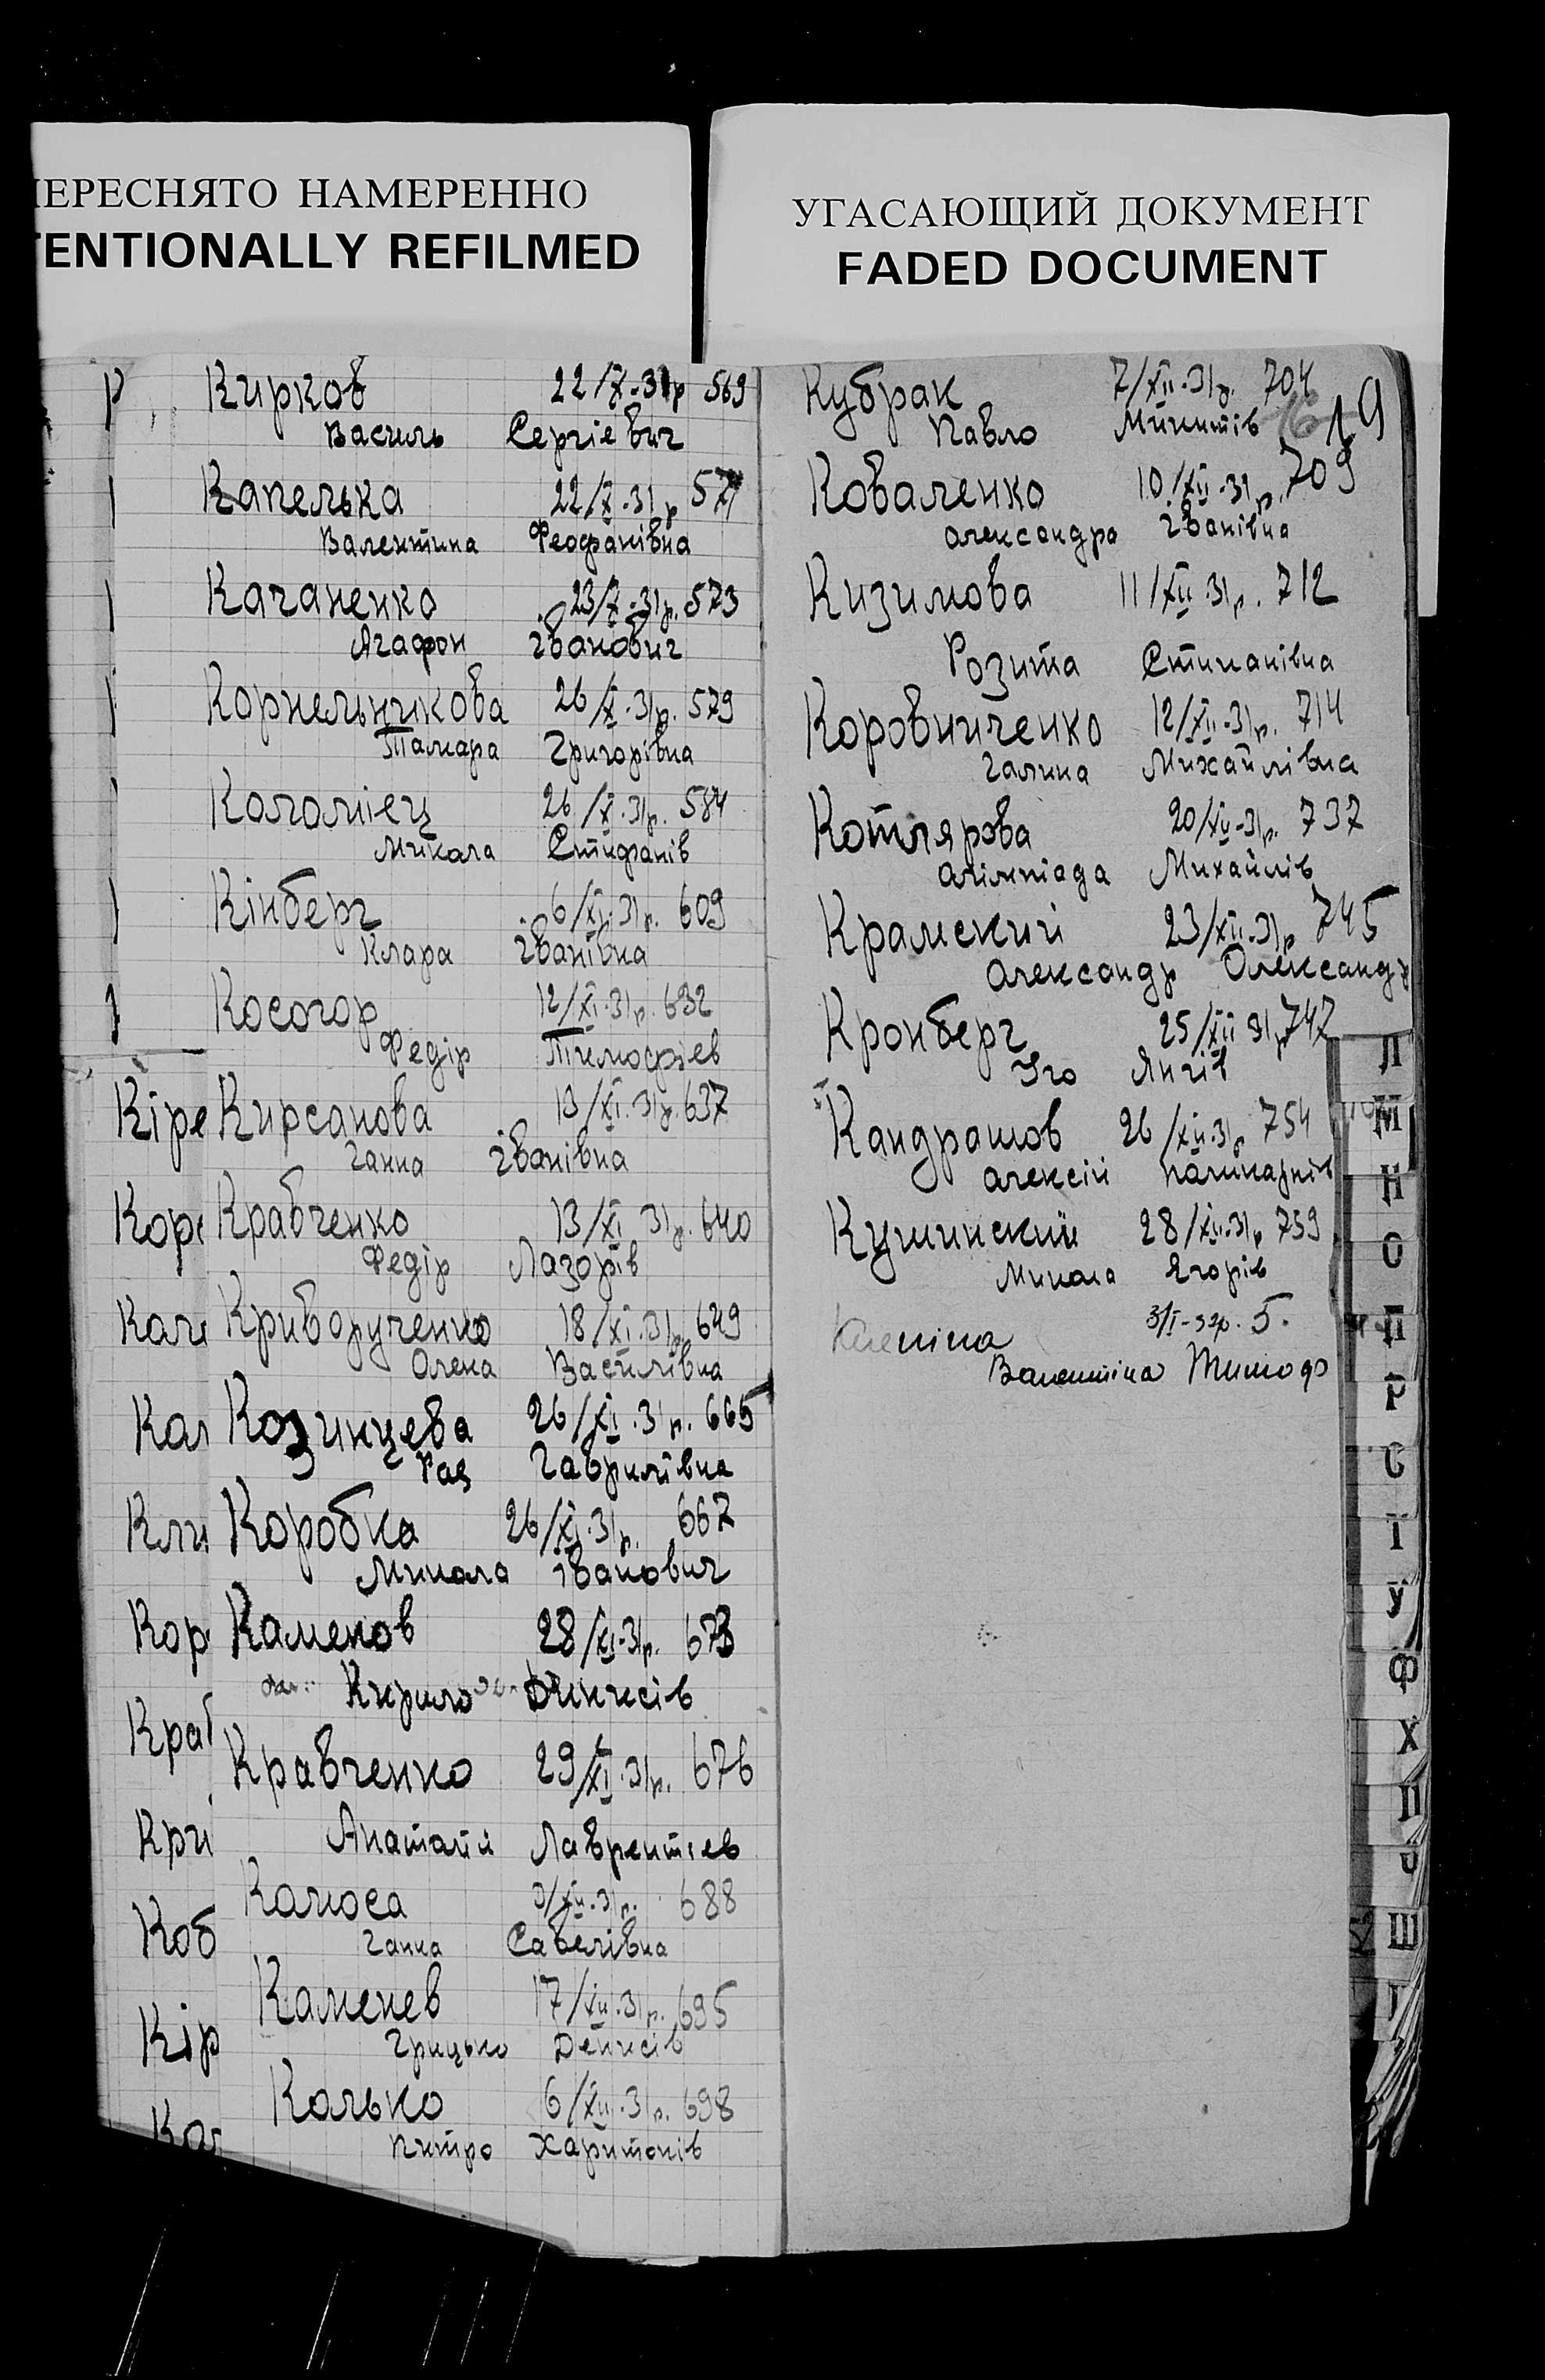 ПЕРЕСНЯТО НАМЕРЕННО
TENTIONALLY REFILMED
УГАСАЮЩИЙ ДОКУМЕНТ
FADED DOCUMENT
Кирков 22/X-31р 569
Василь Сергіевич
Капелька 22/X-31р 571
Валентина Феофанівна
Качаненко 23/X-31р. 573
Агафон Іванович
Корнельчикова 26/X-31р. 579
Тамара Григорівна
Коломіец 26/X.31р. 584
Микола Стифанів
Кінберг 6/XI.31р. 609
Клара Іванівна
Косогор 12/XI.31р. 632
Федір Тимофіев
Кирсанова 13/XI.31р. 637
Ганна Іванівна
Кравченко 13/XI 31р. 640
Федір Лазорів
Криворученко 18/XI.31р. 649
Олена Василівна
Козинцева 26/XI.31р. 665
Рая Гаврилівна
Коробка 26/XI.31р. 667
Микола Іванович
Каменов 28/XI-31р. 673
Кирило Динисів
Кравченко 29/XI.31р. 676
Анаталй Лаврентіев
Калюса 3/XII.31р. 688
Ганна Савелівна
Каменев 17/XII.31р. 695
Грицько Денисів
Калько 6/XII.31р. 698
Питро Харитонів
Кіре
Коре
Каче
Кал
Кли
Кор
Краб
Кри
Коб
Кір
Кал
Кубрак 7/XII.31р. 704
Павло Микитів 16 19
Коваленко 10/XII.31р. 709
Олександра Іванівна
Кизимова 11/XII.31р. 712
Розита Стипанівна
Коровниченко 12/XII-31р. 714
Галина Михайлівна
Котлярова 20/XII-31р. 737
Олімпіада Михайлів
Крамский 23/XII-31р 745
Олександр Олександр
Кронберг 25/XII 31р 747
Уго Янів
Кандрашов 26/XII.31р 754
Олексій Поликарпів
Кушинский 28/XII.31р 759
Микола Ягорів
3/I-32р. 5.
Валентіна Тимоф
Л
М
Н
О
П
Р
С
Т
У
Ф
Х
Ц
Ч
Ш